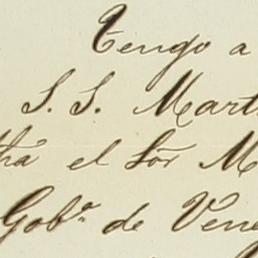 Tengo a
S. S. Mart
thá el Sõr M
Gobº de Vene